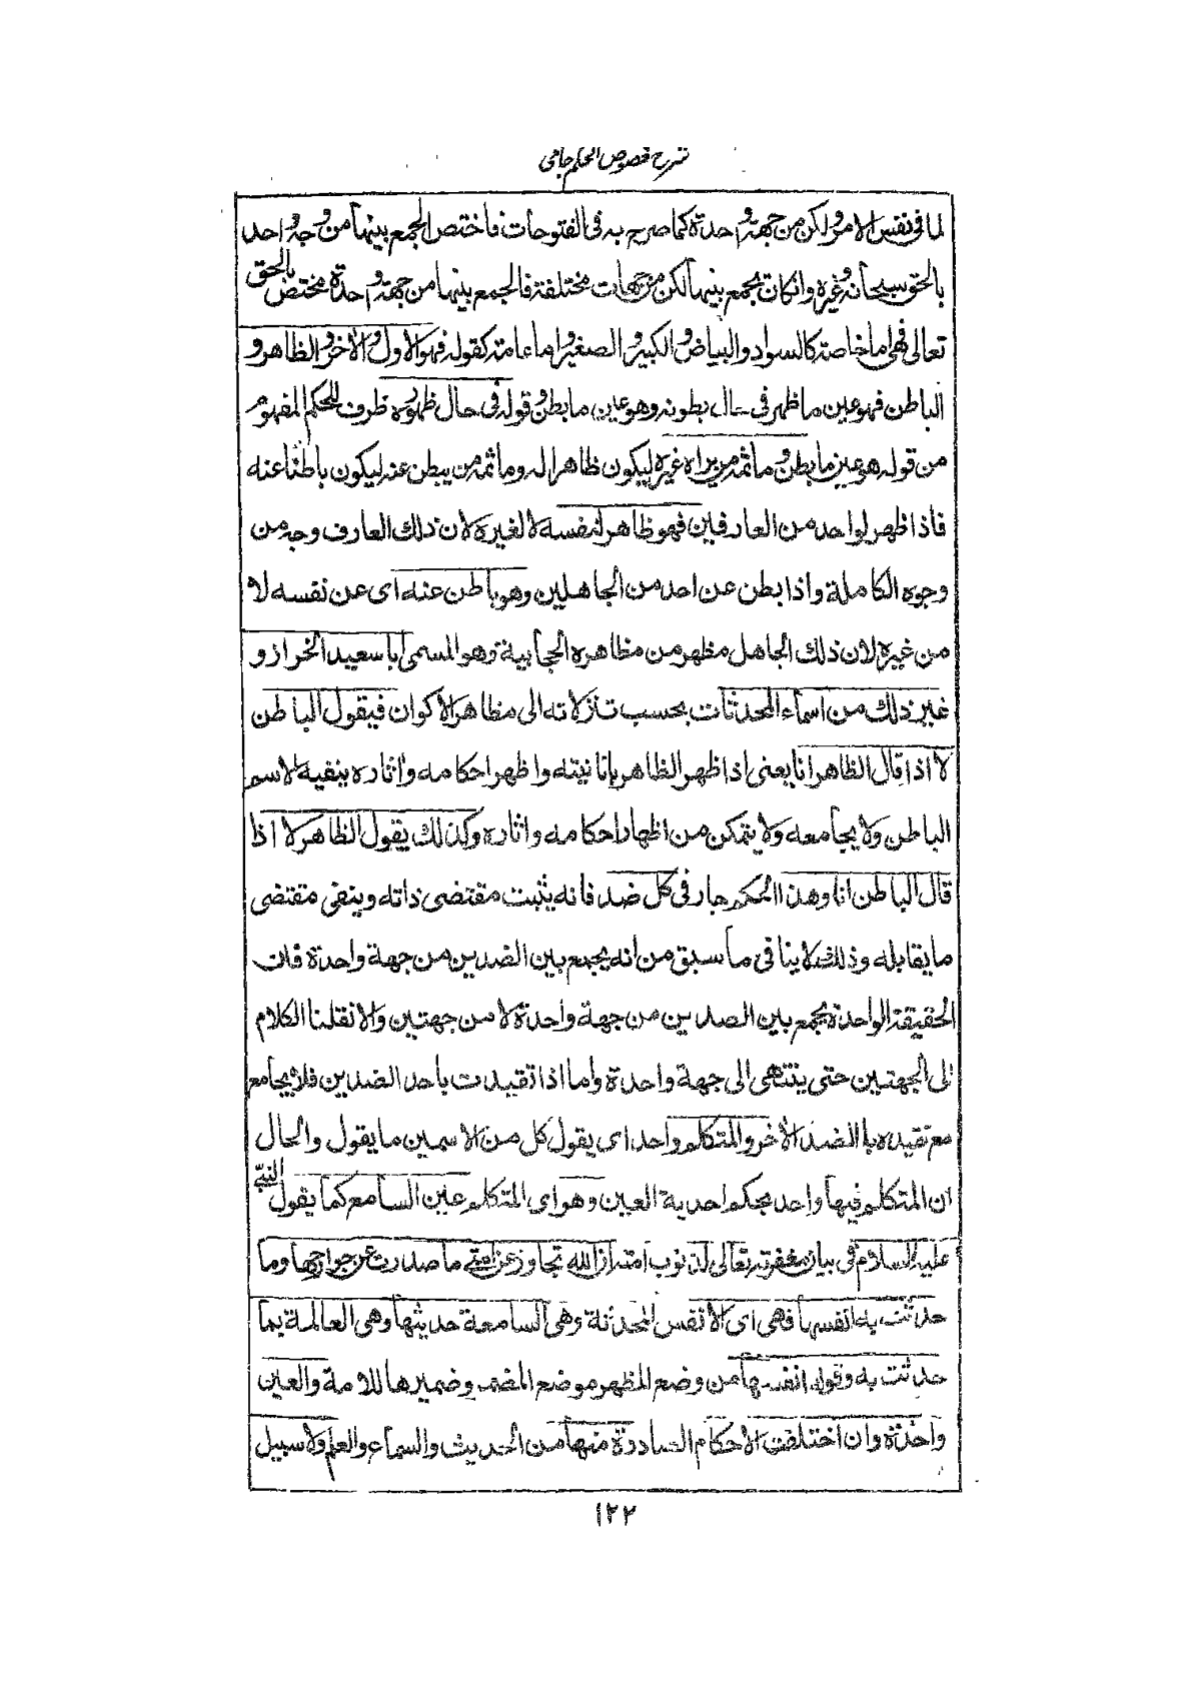 شرح فصوص الحكم جامى
لما فى نفس الامر ولكن من جهة واحدة كما صرح به فى الفتوحات فاختص الجمع بينهما من وجه واحد
بالحق سبحانه وغيره وان كان يجمع بينهما لكن من جهات مختلفة فالجمع بينهما من جهة واحدة مختص بالحق
تعالى فهى اما خاصة كالسواد والبياض والكبير والصغير واما عامة كقوله فهو الاول والآخر والظاهر و
الباطن فهو عين ما ظهر فى حال بطونه وهو عين ما بطن وقوله فى حال ظهوره ظرف للحكم المفهوم
من قوله هو عين ما بطن وما ثمه من يراه غيره ليكون ظاهرا له وما ثمه من يبطن عنه ليكون باطنا عنه
فاذا ظهر لواحد من العارفين فهو ظاهر لنفسه لا لغيره لان ذلك العارف وجه من
وجوه الكاملة واذا بطن عن احد من الجاهلين وهو باطن عنه اى عن نفسه لا
من غيره لان ذلك الجاهل مظهر من مظاهره الحجابية وهو المسمى ابا سعيد الخراز و
غير ذلك من اسماء المحدثات بحسب تنزلاته الى مظاهر الاكوان فيقول الباطن
لا اذا قال الظاهر انا يعنى اذا ظهر الظاهر بانانيته واظهر احكامه واثاره ينفيه الاسم
الباطن ولا يجامعه ولا يتمكن من اظهار احكامه واثاره وكذلك يقول الظاهر لا اذا
قال الباطن انا وهذا الحكم جار فى كل ضد فانه يثبت مقتضى ذاته وينفى مقتضى
ما يقابله وذلك لا ينافى ما سبق من انه يجمع بين الضدين من جهة واحدة فان
الحقيقة الواحدة يجمع بين الضدين من جهة واحدة لا من جهتين والا نقلنا الكلام
الى الجهتين حتى ينتهى الى جهة واحدة واما اذا تقيدت باحد الضدين فلا يجامع
مع تقيده بالضد الآخر والمتكلم واحد اى يقول كل من الاسمين ما يقول والحال
ان المتكلم فيهما واحد بحكم احدية العين وهو اى المتكلم عين السامع كما يقول النبى
عليه السلام فى بيان مغفرته تعالى لذنوب امته ان الله تجاوز عن امتى ما صدرت عن جوارحها وما
حدثت به انفسها فهى اى الانفس المحدثة وهى السامعة حديثها وهى العالمة بما
حدثت به وقوله انفسها من وضع المظهر موضع المضمر وضميرها للامة والعين
واحدة وان اختلفت الاحكام الصادرة منها من الحديث والسماع والعلم ولا سبيل
١٢٢